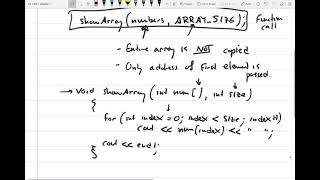 showArray(numbers, ARRAY_SIZE); Function call
- Entire array is NOT copied
- Only address of first element is passed.
→ void showArray (int num[], int size)
{
for (int index = 0; index < size; index++)
cout << num[index] << " ";
cout << endl;
}